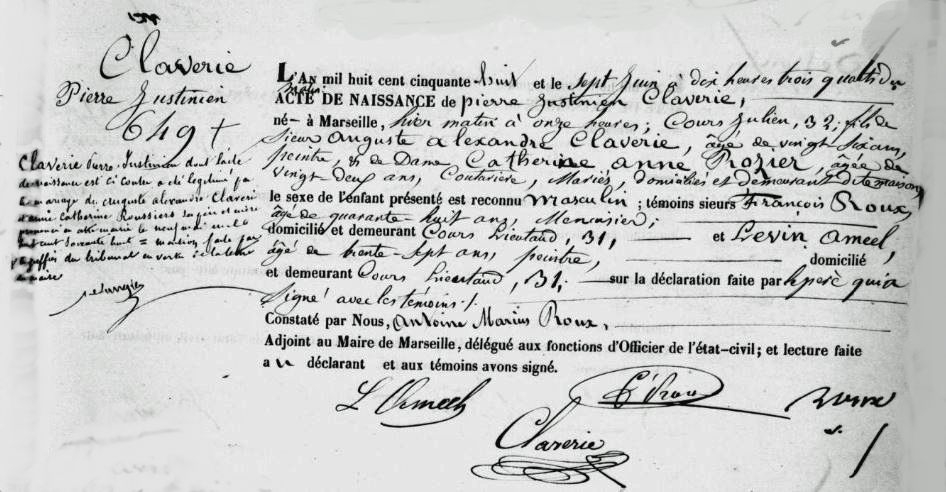 Claverie
Pierre Justinien
649 +
Claverie Pierre Justinien dont l'acte
de naissance est ci contre a été légitimé pa
le mariage de Auguste Alexandre Claverie
Catherine Roussiers
soixante huit = mention faite par
le greffier du tribunal
L'AN mil huit cent cinquante huit et le sept Juin à dix heures trois quarts du
matin
ACTE DE NAISSANCE de Pierre Justinien Claverie,
né à Marseille, hier matin à onze heures; Cours Julien, 32; fils de
Sieur Auguste Alexandre Claverie, âgé de vingt six ans,
peintre, & de Dame Catherine Anne Rozier, âgée de
vingt deux ans, Couturière, Mariés, domiciliés et demeurant dite maison
le sexe de l'enfant présenté est reconnu Masculin; témoins sieurs François Roux,
âgé de quarante huit ans, Menuisier;
domicilié et demeurant Cours Lieutaud, 31, et Levin Ameel,
âgé de trente-sept ans, peintre, domicilié
et demeurant Cours Lieutaud, 31, sur la déclaration faite par le père qui a
signé avec les témoins /.
Constaté par Nous, Antoine Marius Roux,
Adjoint au Maire de Marseille, délégué aux fonctions d'Officier de l'état-civil; et lecture faite
au déclarant et aux témoins avons signé.
L Ameel
Roux
Claverie